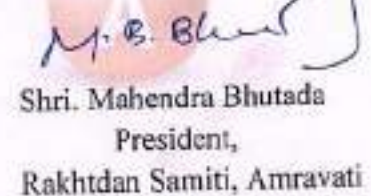 M. B. Bhut
Shri. Mahendra Bhutada
President,
Rakhtdan Samiti, Amravati